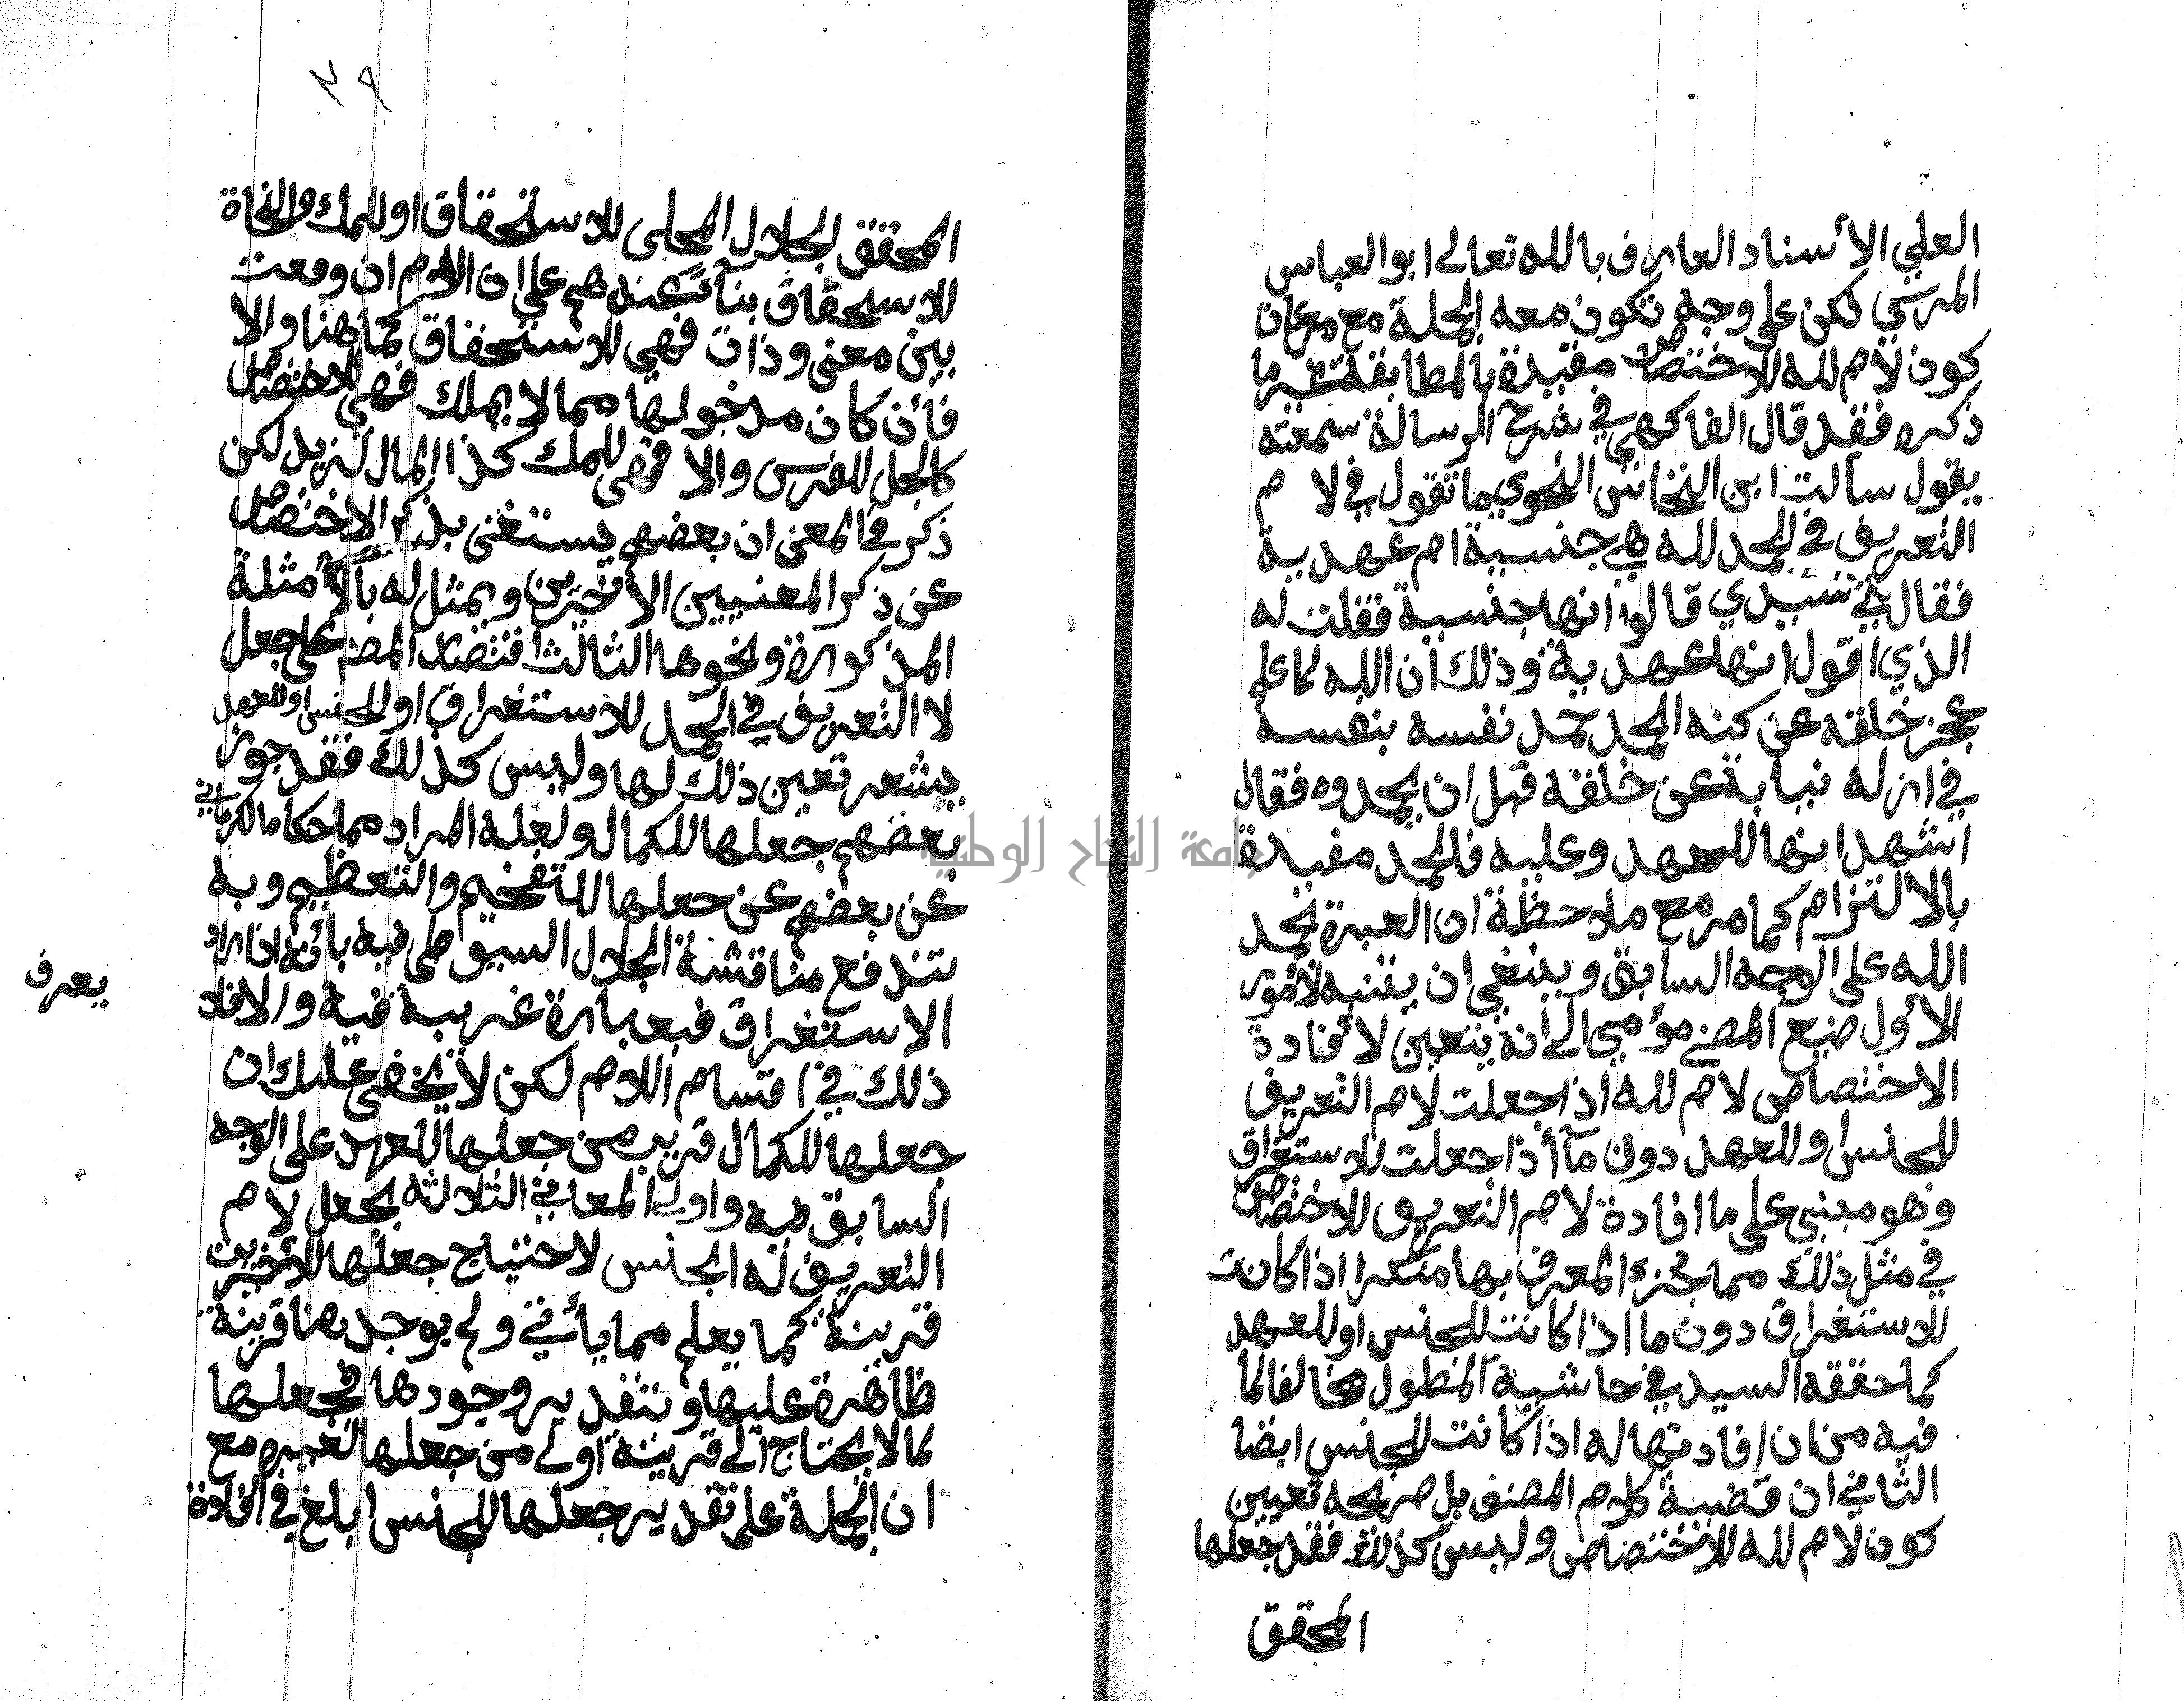 العلي الأستاذ العارف بالله تعالى ابو العباس
المرسي لكن على وجه تكون معه الجملة مع مرعان
كون لام لله للاختصاص مفيدة بالمطابقة غير ما
ذكره فقد قال الفاكهي في شرح الرسالة سمعته
يقول سالت ابن النحاس النحوي ما تقول في لام
التعريف في الحمد لله هي جنسية ام عهدية
فقال لي سيدي قالوا انها جنسية فقلت له
الذي اقول انها عهدية وذلك ان الله لما علم
عجز خلقه عن كنه الحمد حمد نفسه بنفسه
في ازله نيابة عن خلقه قبل ان يحمدوه فقال
اشهد انها للعهد وعليه فالحمد مفيدة
بالالتزام كما مر مع ملاحظة ان العبرة بحمد
الله على الوجه السابق وينبغي ان يتنبه لأمور
الأول صنيع المصنف مؤمي الى انه يتعين لأفادة
الاختصاص لام لله اذا جعلت لام التعريف
للجنس او للعهد دون ما أذا جعلت للاستغراق
وهو مبني على ما افادة لام التعريف للاختصاص
في مثل ذلك مما جزء المعرف بها اذا كانت
للاستغراق دون ما اذا كانت للجنس او للعهد
كما حققه السيد في حاشية المطول مخالفا لما
فيه من ان افادتها له اذا كانت للجنس ايضا
الثاني ان قضية كلام المصنف بل صريحه تعيين
كون لام لله للاختصاص وليس كذلك فقد جعلها
المحقق
٣٩
المحقق الجلال المحلى للاستحقاق او للملك والنحاة
للاستحقاق بناء عندهم على ان اللام ان وقعت
بين معنى وذات فهي للاستحقاق كما هنا والا
فأن كان مدخولها مما لا يملك فهي للاختصاص
كالجل للفرس والا فهي للملك كذا المال لزيد لكن
ذكر في المغنى ان بعضهم يستغنى بذكر الاختصاص
عن ذكر المعنيين الأخرين ويمثل له بالأمثلة
المذكورة ونحوها الثالث المصنف على جعل
لا التعريف في الحمد للاستغراق او للجنس او للعهد
يشعر تعين ذلك لها وليس كذلك فقد جوز
بعضهم جعلها للكمال ولعله المراد مما حكاه الكرماني
عن بعضهم عن جعلها للتفخيم والتعظيم وبه
تندفع مناقشة الجلال السيوطي فيه بأنه ان اراد
الاستغراق فبعبارة غريبة فيه والا فلا يعرف
ذلك في اقسام اللام لكن لا يخفى عليك ان
جعلها للكمال قريب من جعلها للعهد على الوجه
السابق فيه واولى المعاني الثلاثه بجعل لام
التعريف له الجنس لاحتياج جعلها للأخيرين
قرينة كما يعلم مما يأتي ولم يوجد هنا قرينة
ظاهرة عليها وبتقدير وجودها فجعلها
لما لا يحتاج الى قرينة أولى من جعلها لغيره مع
ان الجملة على تقدير جعلها للجنس ابلغ في افادة